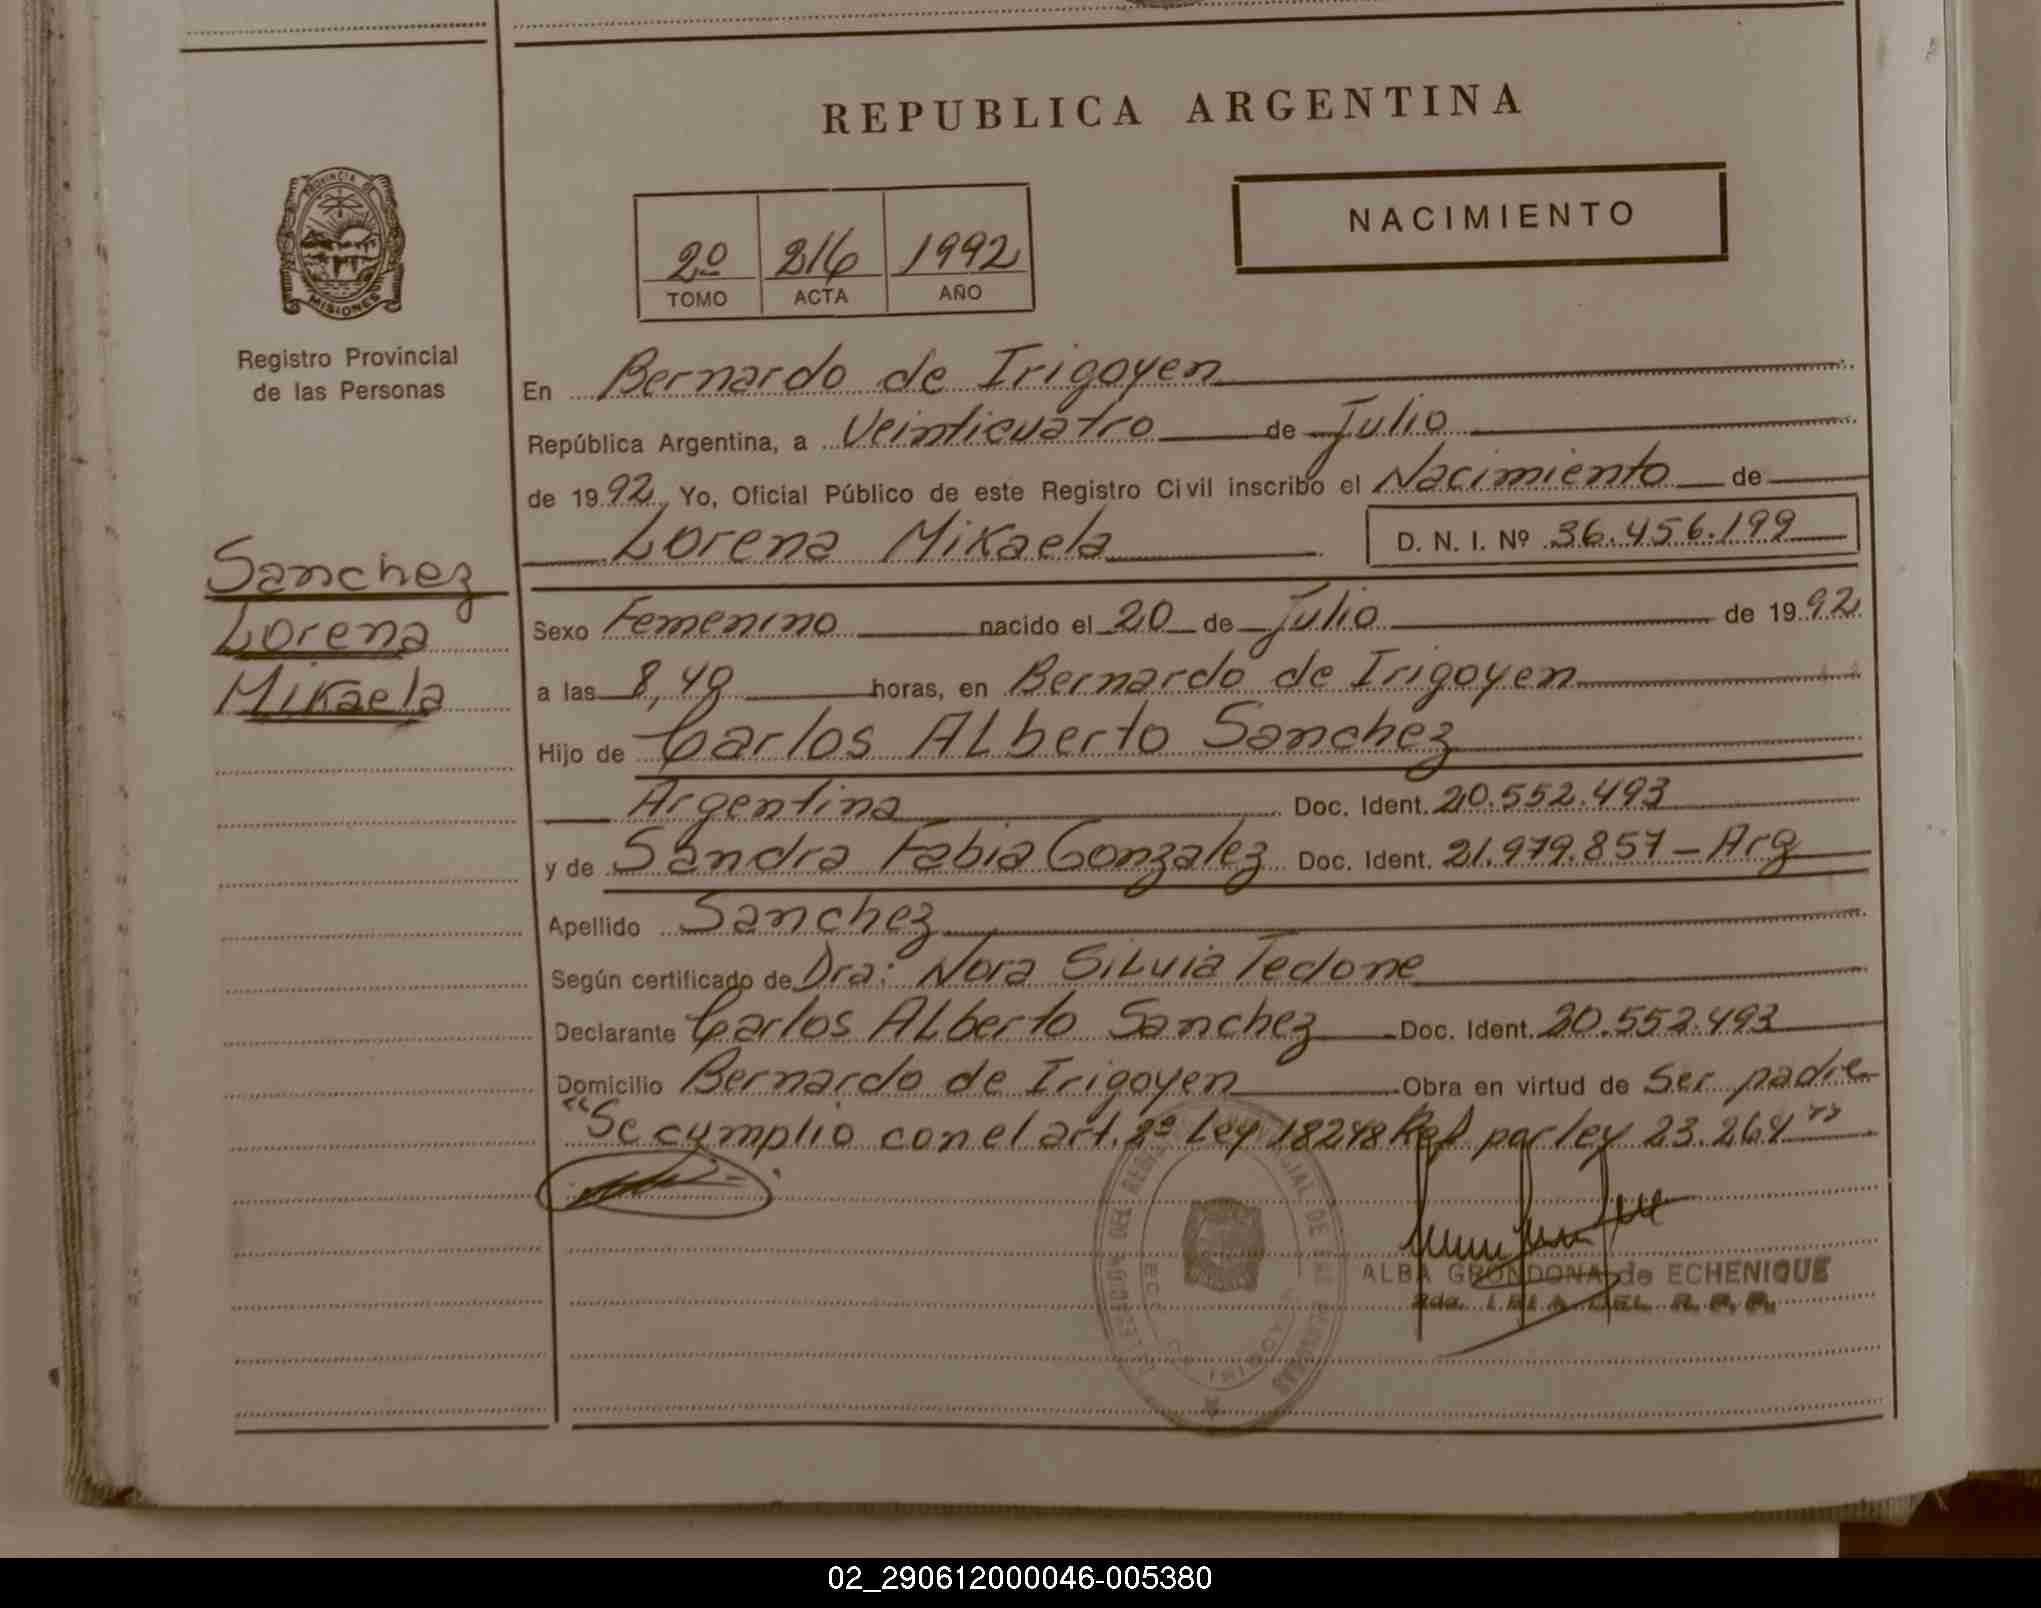 REPUBLICA ARGENTINA
NACIMIENTO
2º 216 1992
TOMO ACTA AÑO
PROVINCIA DE
MISIONES
Registro Provincial
de las Personas
Sanchez
Lorena
Mikaela
En Bernardo de Irigoyen
República Argentina, a Veinticuatro de Julio
de 1992 Yo, Oficial Público de este Registro Civil inscribo el Nacimiento de
Lorena Mikaela D. N. I. Nº 36.456.199
Sexo Femenino nacido el 20 de Julio de 1992
a las 8,40 horas, en Bernardo de Irigoyen
Hijo de Carlos ALberto Sanchez
Argentina Doc. Ident. 20.552.493
y de Sandra Fabia Gonzalez Doc. Ident. 21.979.857 - Arg
Apellido Sanchez
Según certificado de Dra: Nora SiLvia Tedone
Declarante Carlos ALberto Sanchez Doc. Ident. 20.552.493
Domicilio Bernardo de Irigoyen Obra en virtud de Ser padre
"Se cumplio con el art. 2º Ley 18248 Ref por ley 23.264"
ALBA GRONDONA de ECHENIQUE
02_290612000046-005380